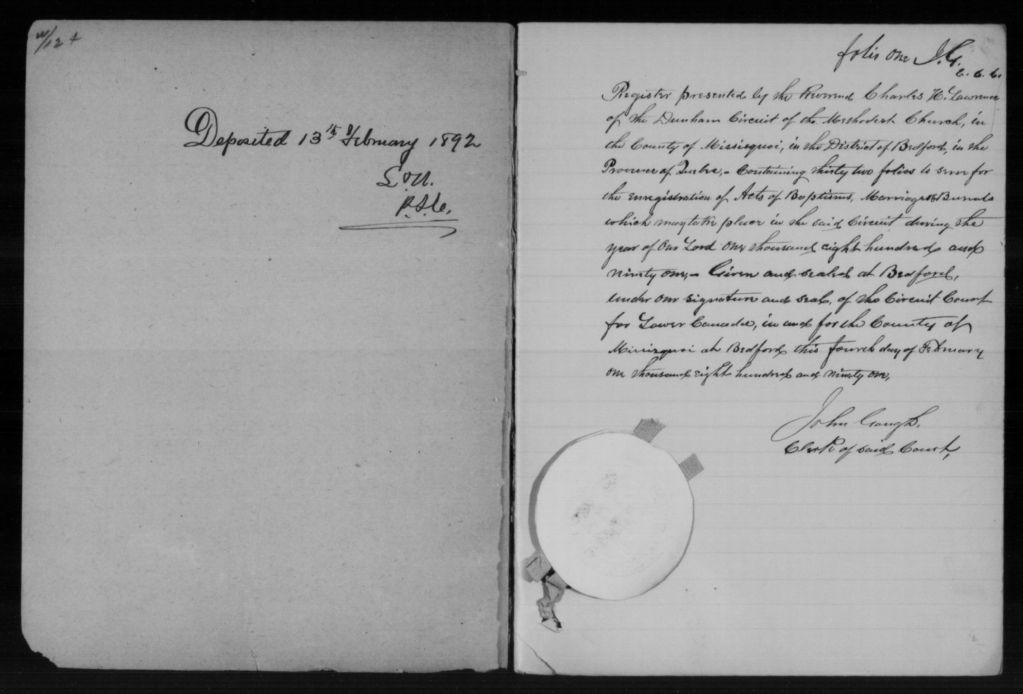 Deposited 13th February 1892
P.S.C.
folio One J.G.
C.C.C.
Register presented by the Reverend Charles H. Lawrence
of the Dunham Circuit of the Methodist Church, in
the County of Missisquoi, in the District of Bedford, in the
Province of Quebec, - Containing thirty two folios to serve for
the enregistration of Acts of Baptisms, Marriages & Burials
which may take place in the said Circuit during the
year of Our Lord One thousand eight hundred and
ninety one, - Given and sealed at Bedford,
under our signature and seal, of the Circuit Court
for Lower Canada, in and for the County of
Missisquoi at Bedford this fourth day of February
one thousand eight hundred and ninety one,
John Gough.
Clerk of said Court,